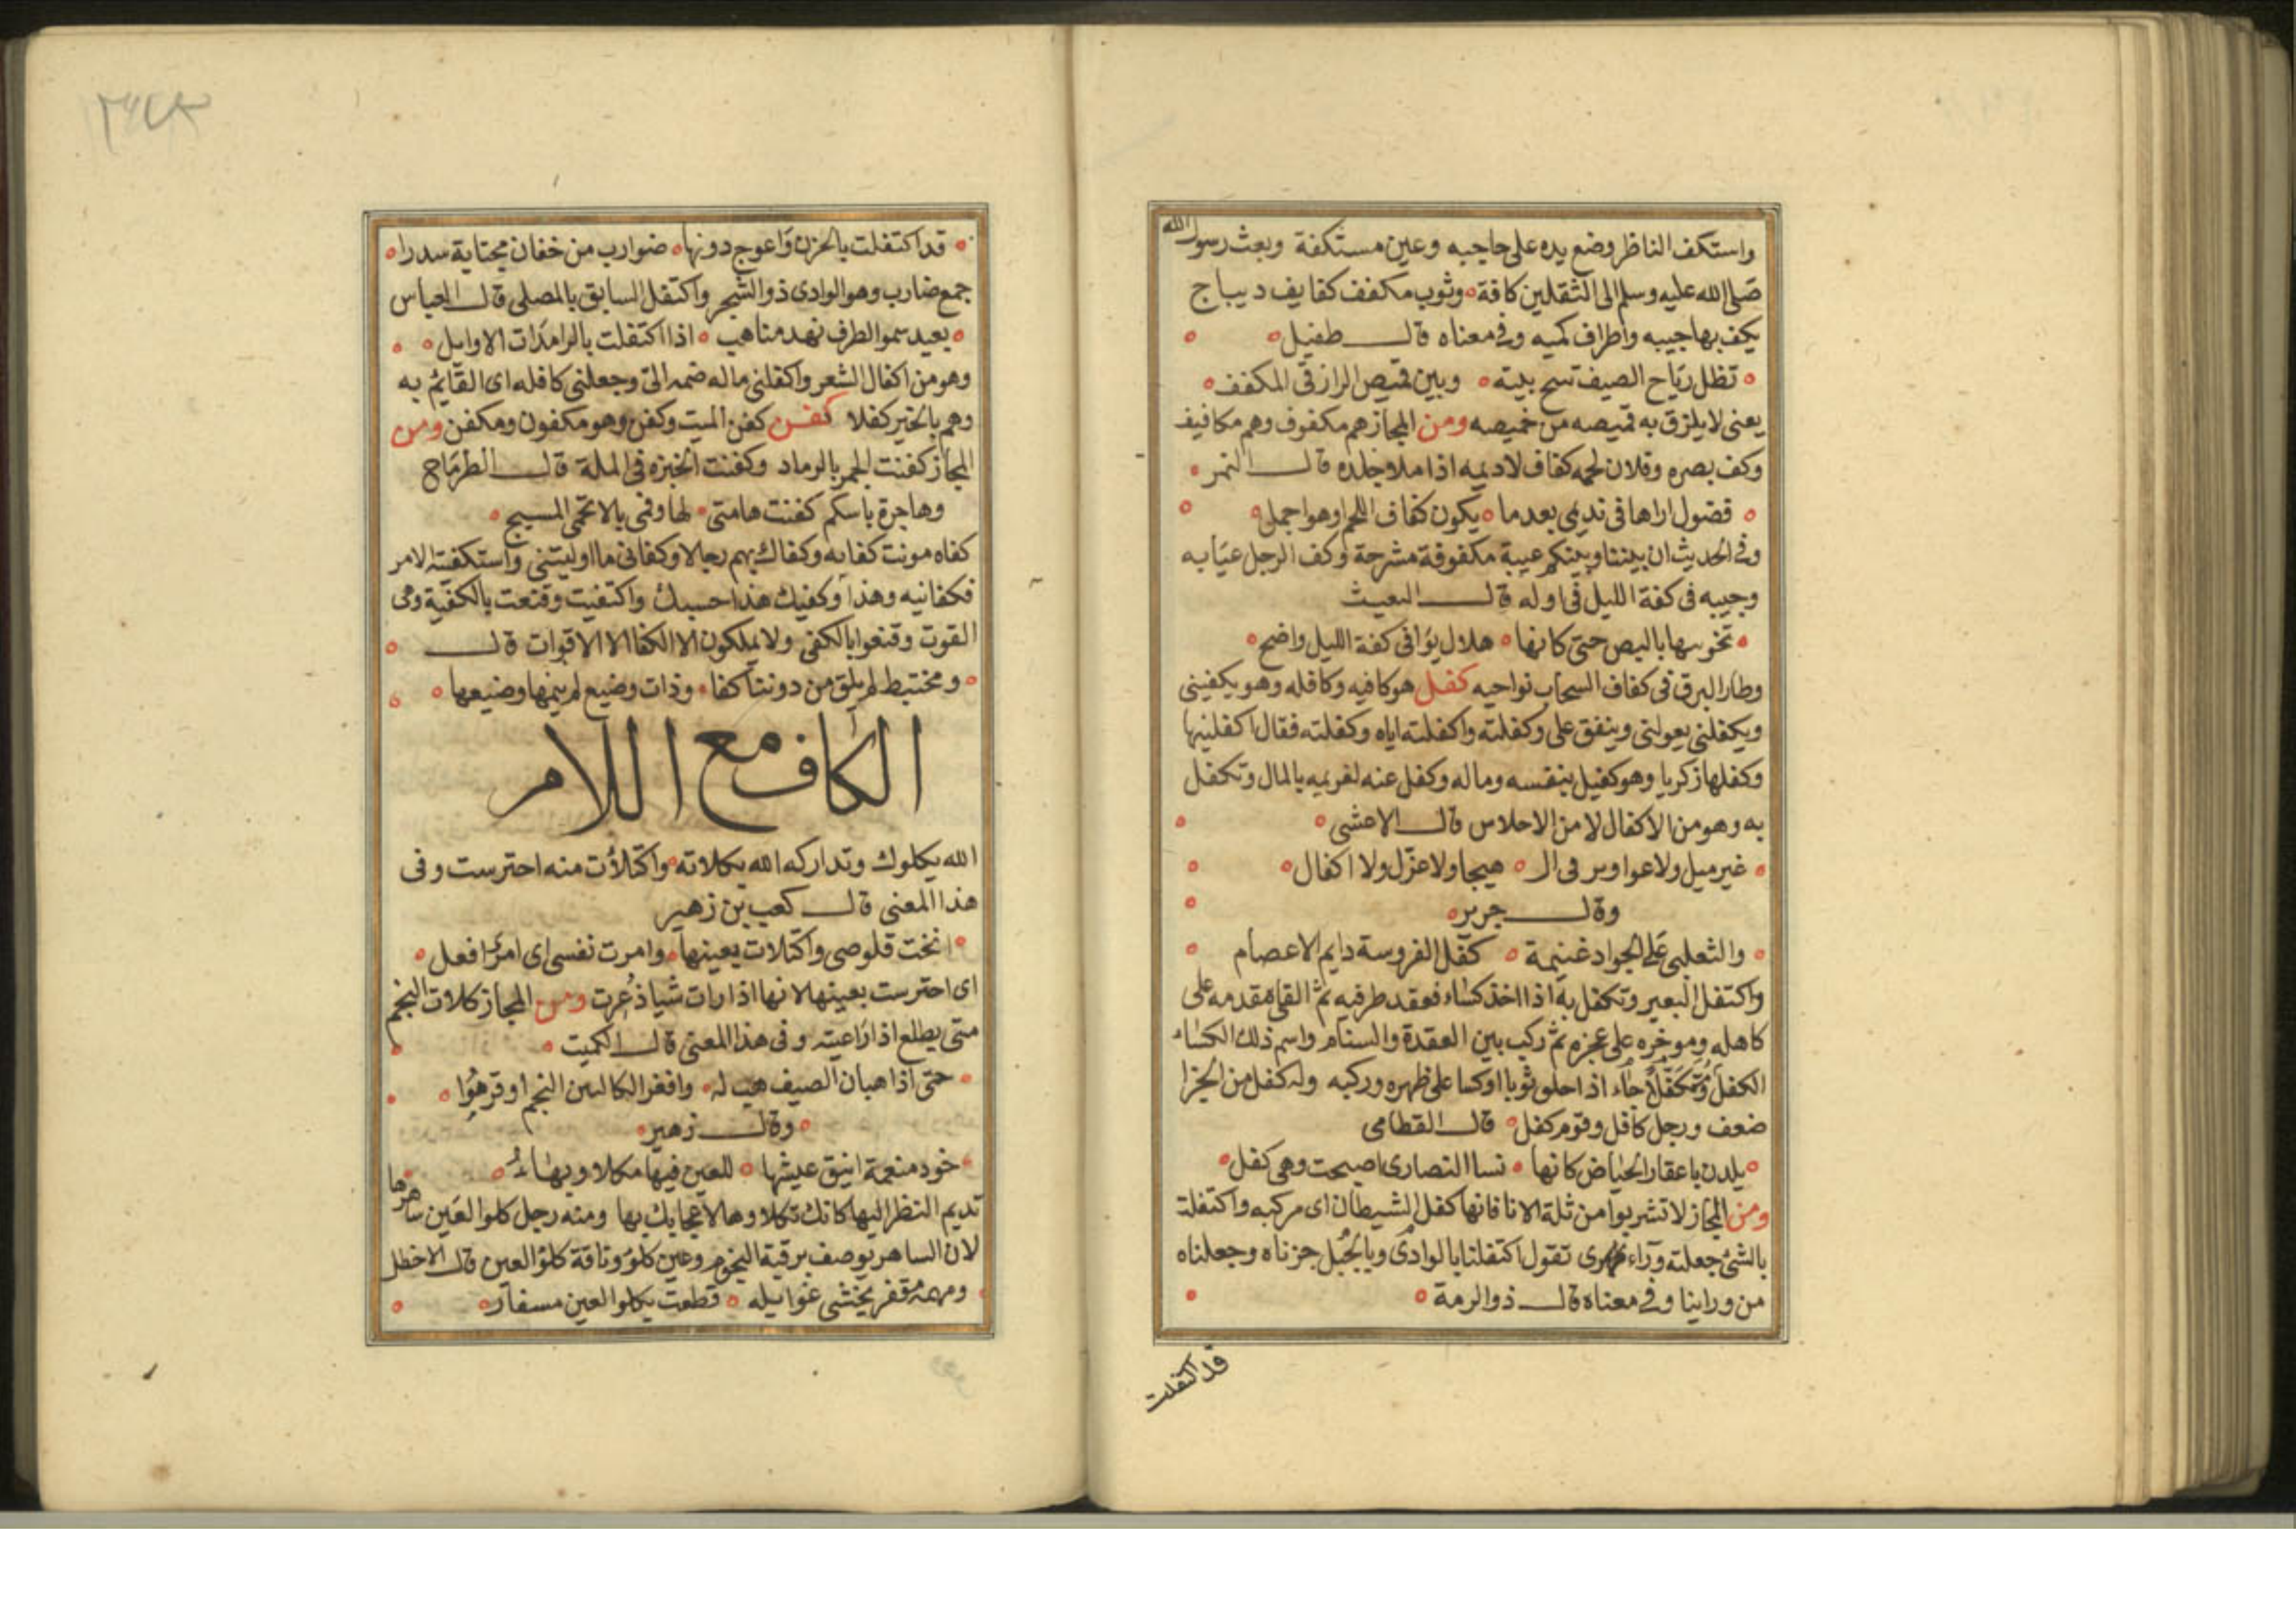 واستكف الناظر وضع يده على حاجبه وعين مستكفة وبعث رسول الله
صلى الله عليه وسلم الى الثقلين كافة وثوب مكفف كفايف ديباج
يكف بها جيبه واطراف كميه وفى معناه قال طفيل
تظل رياح الصيف تنسج بينه وبين قميص الرازقى المكفف
يعنى لا يلزق به قميصه من خميصه ومن المجاز هم مكفوف وهم مكافيف
وكف بصره وفلان لحمه كفاف لاديمه اذا ملا جلده قال النمر
فضول اراها فى نديمى بعدما يكون كفاف اللحم او هو اجمل
وفى الحديث ان بيننا وبينكم عيبة مكفوفة مشرجة وكف الرجل عيابه
وجيبه فى كفة الليل فى اوله قال البعيث
تخوسها بالبص حتى كانها هلال يوافى كفة الليل واضح
وطار البرق فى كفاف السحاب نواحيه كفل هو كافيه وكافله وهو يكفينى
ويكفلنى يعولنى وينفق على وكفلته واكفلته اياه وكفلته فقال اكفلنيها
وكفلها زكريا وهو كفيل بنفسه وماله وكفل عنه لغريمه بالمال وتكفل
به وهو من الاكفال لا من الاحلاس قال الاعشى
غير ميل ولا عواوير فى ال هيجا ولا عزل ولا اكفال
وقال جرير
والثعلبى على الجواد غنيمة كفل الفروسة دايم الاعصام
واكتفل البعير وتكفل به اذا اخذ كساء فعقد طرفيه ثم القى مقدمه على
كاهله وموخره على عجزه ثم ركب بين العقدة والسنام واسم ذلك الكساء
الكفل وتكفلا جاء اذا حلق ثوبا او كسا على ظهره وركبه وله كفل من الجزا
ضعف ورجل كافل وقوم كفل قال القطامى
يلدن باعقار الحياض كانها نسا النصارى اصبحت وهى كفل
ومن المجاز لا تشربوا من ثلة الانا فانها كفل الشيطان اى مركبه واكتفلت
بالشئ جعلته وراء ظهرى تقول اكتفلنا بالوادى وبالجبل جزناه وجعلناه
من وراينا وفى معناه قال ذو الرمة
قد اكتفلت
قد اكتفلت بالحزن واعوج دونها ضوارب من خفان مجتابة سدرا
جمع ضارب وهو الوادى ذو الشجر واكتفل السابق بالمصلى قال العباس
بعيد سمو الطرف نهد مناهب اذا اكتفلت بالرامدات الاوايل
وهو من اكفال الشعر واكفلنى ماله ضمه الى وجعلنى كافله اى القائم به
وهم بالخير كفلا كفن كفن الميت وكفن وهو مكفون ومكفن ومن
المجاز كفنت الجمر بالرماد وكفنت الخبزه فى الملة قال الطرماح
وهاجرة باسكم كفنت هامتى لها وفى بالاتحمى المسيح
كفاه مونت كفايه وكفاك بهم رجالا وكفانى ما اوليتنى واستكفته الامر
فكفانيه وهذا وكفيك هذا حسبك واكتفيت وقنعت بالكفية وهى
القوت وقنعوا بالكفى ولا يملكون الا الكفا الا الاقوات قال
ومختبط لم يلق من دوننا كفا وذات وضيع لم ينمها وضيعها
الكاف مع اللام
الله يكلوك وتداركه الله بكلاته واكتلأت منه احترست وفى
هذا المعنى قال كعب بن زهير
انخت قلوصى واكتلات بعينها وامرت نفسى اى امرى افعل
اى احترست بعينها لانها اذا رات شيا ذعرت ومن المجاز كلات النجم
متى يطلع اذا راعيته وفى هذا المعنى قال الكميت
حتى اذا هبان الصيف هب له وافغر الكالين النجم او قرهوا
وقال زهير
خود منعمة انيق عيشها للعين فيها مكلا وبهاء
تديم النظر اليها كانك تكلاوها لاعجابك بها ومنه رجل كلو العين ساهرها
لان الساهر يوصف برقبة النجوم وعين كلو وناقة كلو العين قال الاخطل
ومهمه مقفر يخشى غوايله قطعت بكلو العين مسفار